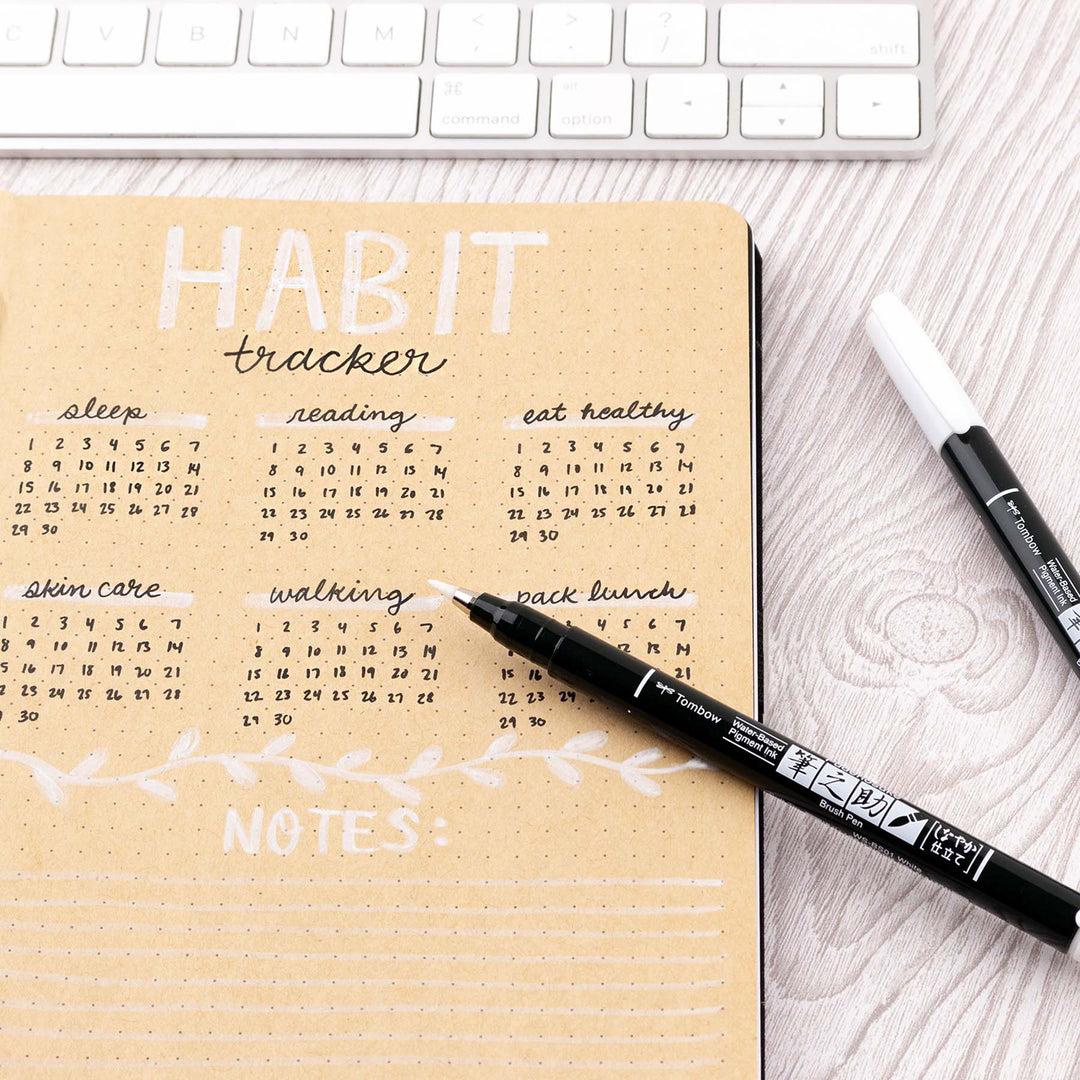 C V B N M < , > . ? / shift
⌘ command alt option ◄ ▲ ▼ ►
HABIT
tracker
sleep
1 2 3 4 5 6 7
8 9 10 11 12 13 14
15 16 17 18 19 20 21
22 23 24 25 26 27 28
29 30
reading
1 2 3 4 5 6 7
8 9 10 11 12 13 14
15 16 17 18 19 20 21
22 23 24 25 26 27 28
29 30
eat healthy
1 2 3 4 5 6 7
8 9 10 11 12 13 14
15 16 17 18 19 20 21
22 23 24 25 26 27 28
29 30
skin care
1 2 3 4 5 6 7
8 9 10 11 12 13 14
5 16 17 18 19 20 21
2 23 24 25 26 27 28
9 30
walking
1 2 3 4 5 6 7
8 9 10 11 12 13 14
15 16 17 18 19 20 21
22 23 24 25 26 27 28
29 30
pack lunch
3 4 5 6 7
8 13 14
15 16 21
22 23 24 28
29 30
NOTES:
Tombow
Water-Based
Pigment Ink
筆之助
Brush Pen
WS-BS01 White
しなやか
仕立て
Tombow
Water-Based
Pigment Ink
筆